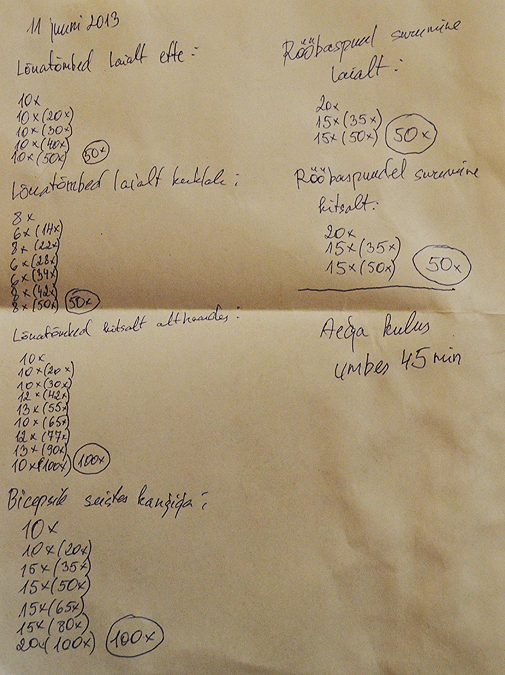 11 juuni 2013
Lõuatõmbed laialt ette:
10x
10x(20x)
10x(30x)
10x(40x)
10x(50x) 50x
Lõuatõmbed laialt kuklale:
8x
6x(14x)
8x(22x)
6x(28x)
6x(34x)
8x(42x)
8x(50x) 50x
Lõuatõmbed kitsalt althaardes:
10x
10x(20x)
10x(30x)
12x(42x)
13x(55x)
10x(65x)
12x(77x)
13x(90x)
10x(100x) 100x
Bicepsile seistes kangiga:
10x
10x(20x)
15x(35x)
15x(50x)
15x(65x)
15x(80x)
20x(100x) 100x
Rööbaspuul surumine
laialt:
20x
15x(35x)
15x(50x) 50x
Rööbaspuudel surumine
kitsalt:
20x
15x(35x)
15x(50x) 50x
Aega kulus
umbes 45 min